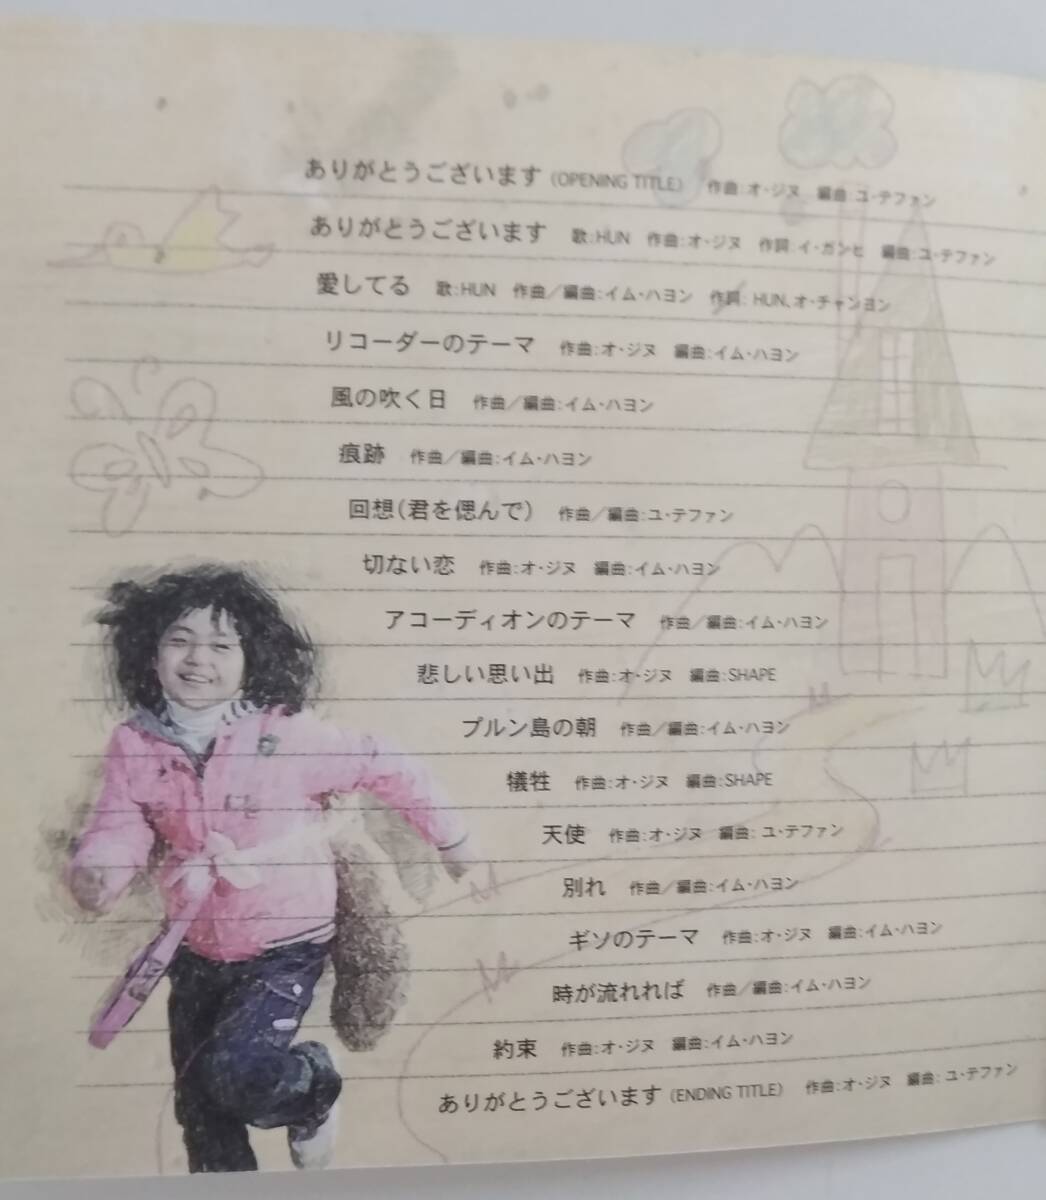 ありがとうございます (OPENING TITLE) 作曲:オ・ジヌ 編曲:ユ・テファン
ありがとうございます 歌:HUN 作曲:オ・ジヌ 作詞:イ・ガンヒ 編曲:ユ・テファン
愛してる 歌:HUN 作曲/編曲:イム・ハヨン 作詞: HUN、オ・チャンヨン
リコーダーのテーマ 作曲:オ・ジヌ 編曲:イム・ハヨン
風の吹く日 作曲/編曲:イム・ハヨン
痕跡 作曲/編曲:イム・ハヨン
回想(君を偲んで) 作曲/編曲:ユ・テファン
切ない恋 作曲:オ・ジヌ 編曲:イム・ハヨン
アコーディオンのテーマ 作曲/編曲:イム・ハヨン
悲しい思い出 作曲:オ・ジヌ 編曲:SHAPE
プルン島の朝 作曲/編曲:イム・ハヨン
犠牲 作曲:オ・ジヌ 編曲:SHAPE
天使 作曲:オ・ジヌ 編曲: ユ・テファン
別れ 作曲/編曲:イム・ハヨン
ギソのテーマ 作曲:オ・ジヌ 編曲:イム・ハヨン
時が流れれば 作曲/編曲:イム・ハヨン
約束 作曲:オ・ジヌ 編曲:イム・ハヨン
ありがとうございます (ENDING TITLE) 作曲:オ・ジヌ 編曲: ユ・テファン